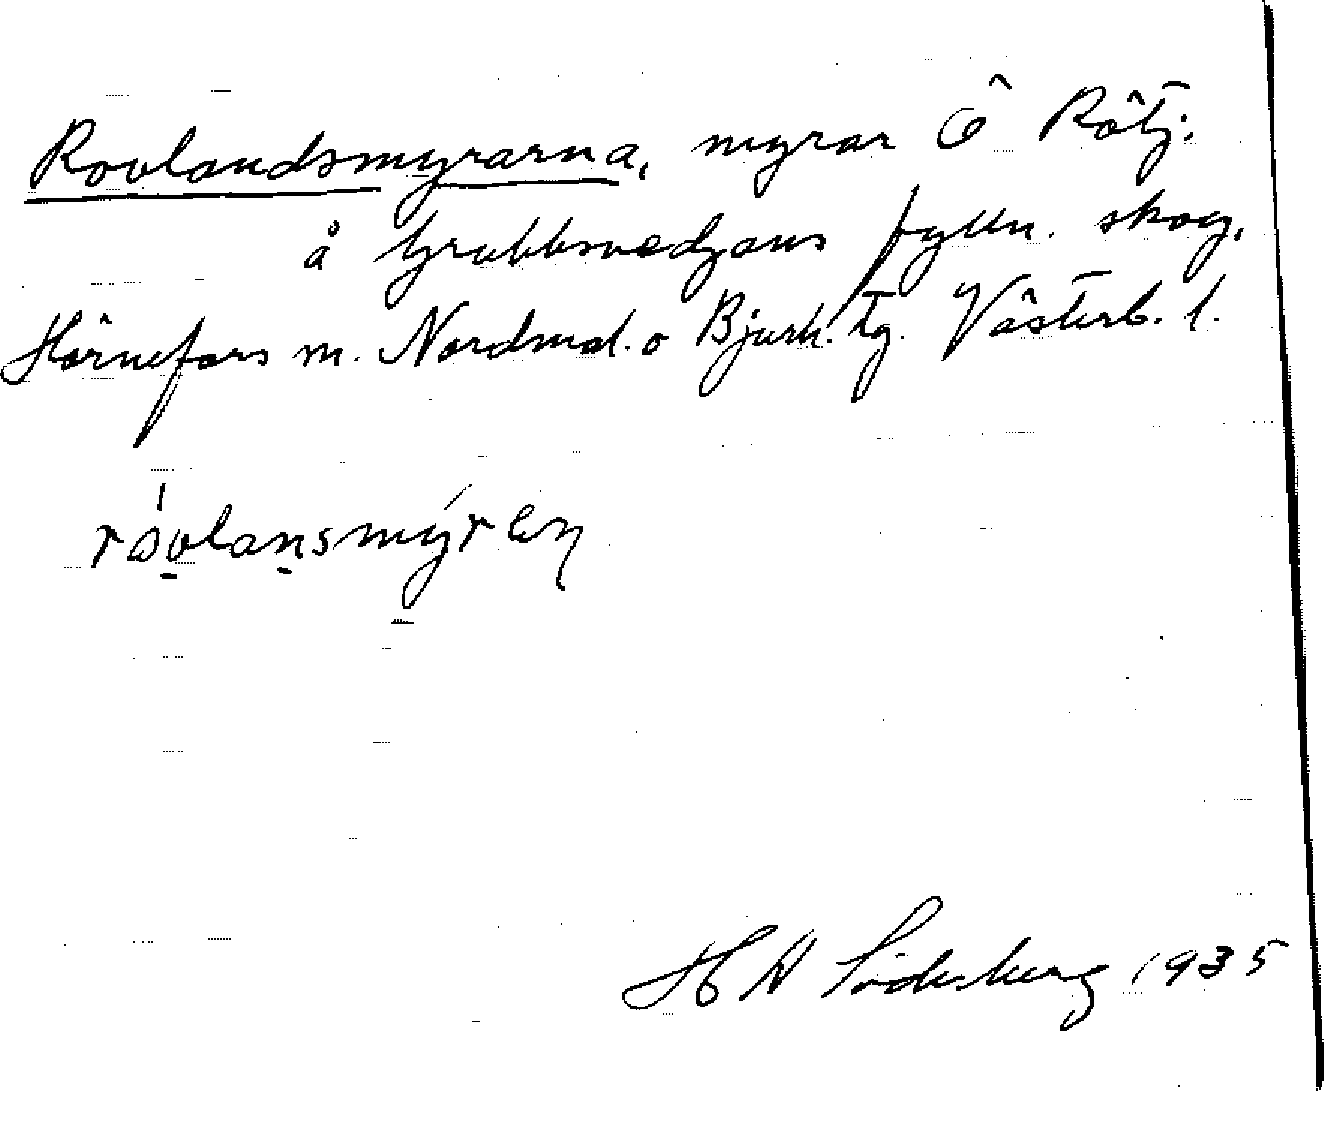 Rovlandsmyrarna, myrar Ö Rötj.
å Grubbsvedjans fylln. skog,
Hörnefors m. Nordmal. o Bjurh. tg. Västerb. l.
róvlansmýren
H A Söderberg 1935